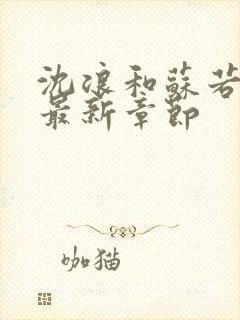 沈浪和蘇若
最新章節
咖猫